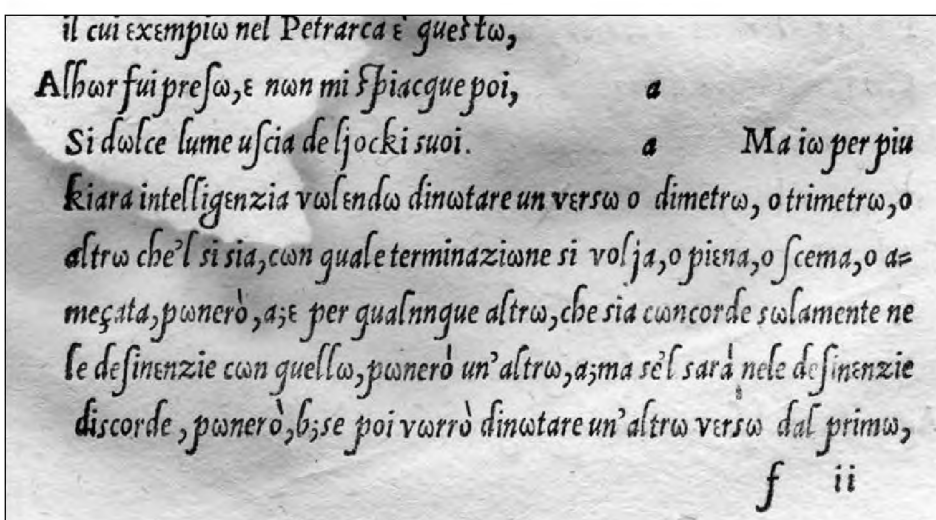 il cui εxεmpiω nel Petrarca ὲ queſtω,
Alhωr fui preſω, ε nωn mi ſpiacque poi, a
Si dωlce lume uſcia de ljocki suoi. a Ma iω per piu
kiara intelligεnzia vωlεndω dinωtare un vεrsω o dimetrω, o trimetrω, o
altrω che'l si sia, cωn quale terminaziωne si volja, o piεna, o ſcema, o a=
meçata, pωnerò, a; ε per qualnnque altrω, che sia cωncorde sωlamente ne
le deſinεnzie cωn quellω, pωnerò un'altrω, a; ma se'l sarà nele deſinεnzie
discorde, pωnerò, b; se poi vωrrò dinωtare un'altrω vεrsω dal primω,
f ii